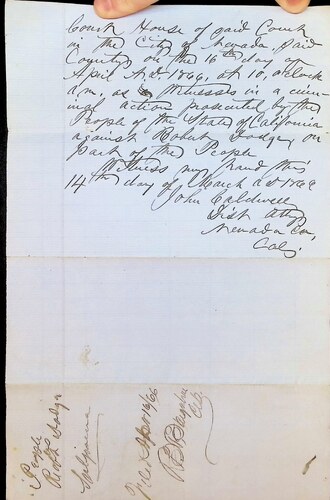 Court House of said County
in the City of Nevada, said
County, on the 16th day of
April A.D. 1866, at 10, o'clock
a.m., as Witnesses in a crim-
inal action prosecuted by the
People of the State of California
against Robert Dodge, on
part of the People
Witness my hand this
14th day of March A.D 1866
John Caldwell
Dist Atty
Nevada Co,
Cal,
People
Robt Dodge
Subpoena
Filed Apr 16/66
R B
Clk